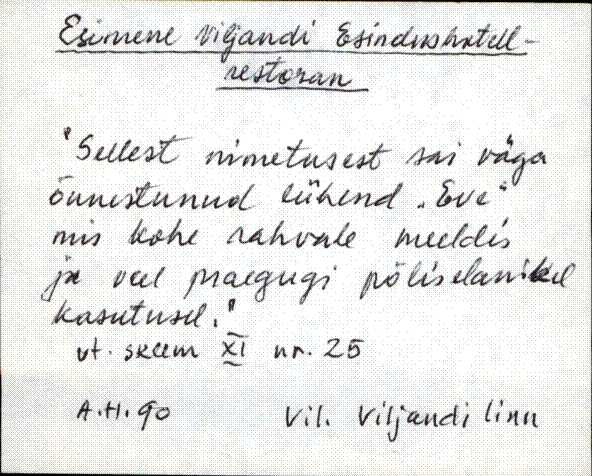 Esimene Viljandi Esindushotell-
restoran
"Sellest nimetusest sai väga
õnnestunud lühend „Eve"
mis kohe rahvale meeldis
ja veel praegugi põliselanikel
kasutusel."
vt. skeem XI nr. 25
A.H. 90 Vil. Viljandi linn